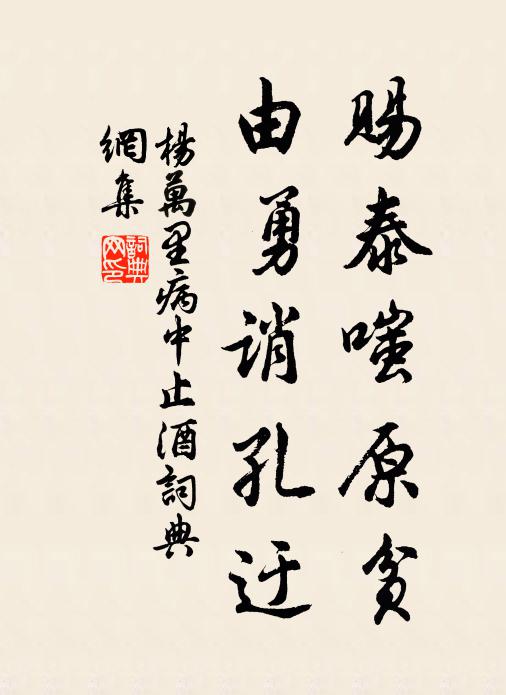 賜泰嗤原貧
由勇誚孔迂
楊萬里病中止酒詞典
網集
詞典
网印